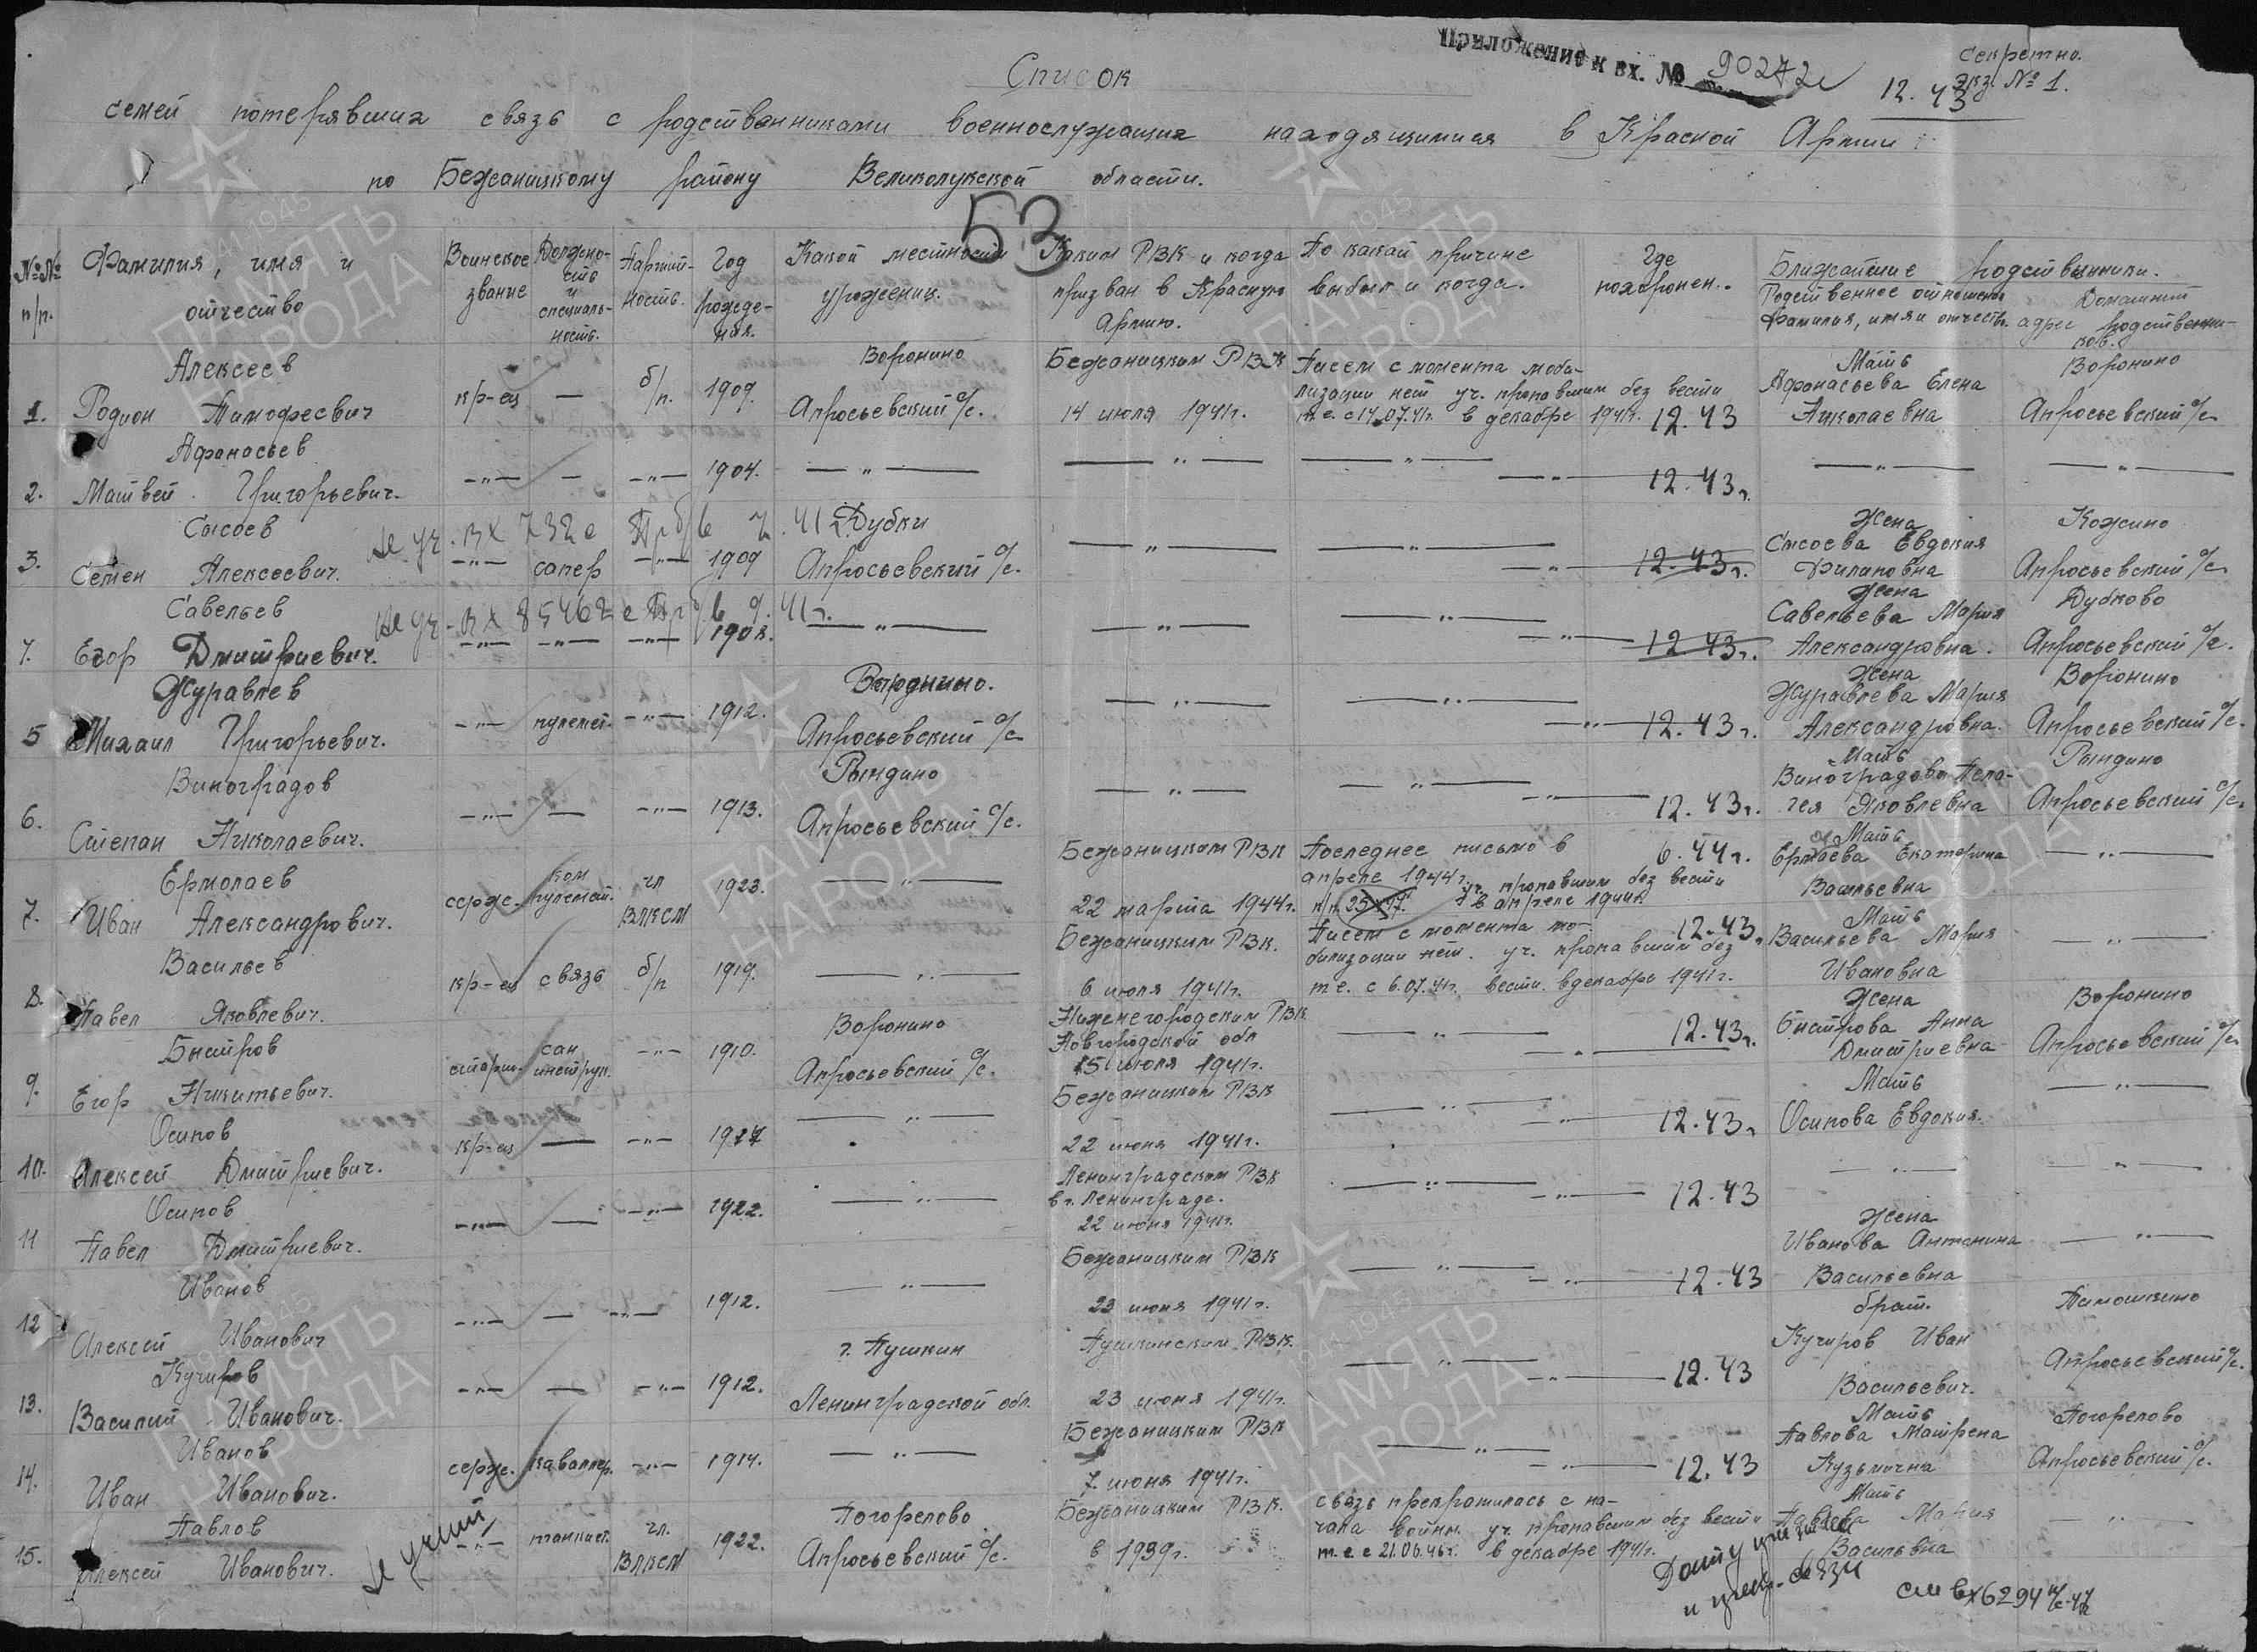 Приложение к вх. № 90272с
Секретно.
экз. № 1.
12.43
Список
семей потерявших связь с родственниками военнослужащих находящимися в Красной Армии
по Бежаницкому району Великолукской области.
53
№№ п/п.
Фамилия, имя и отчество
Воинское звание
Должность и специальность.
Партийность.
Год рождения.
Какой местности уроженец.
Каким РВК и когда призван в Красную Армию.
По какой причине выбыл и когда.
Где похоронен.
Ближайшие родственники.
Родственное отношение фамилия, имя и отчеств.
Домашний адрес родственников.
1. Алексеев Родион Тимофеевич
кр-ец — б/п. 1909.
Воронино Апросьевский с/с.
Бежаницким РВК 14 июля 1941г.
Писем с момента мобилизации нет уч. пропавшим без вести
т.е. с 14.07.41г. в декабре 1941г. 12.43
Мать Афанасьева Елена Николаевна
Воронино Апросьевский с/с
2. Афанасьев Матвей Григорьевич.
—"— — —"— 1904. —"— —"— —"— —"— 12.43г. —"— —"—
3. Сысоев Семен Алексеевич.
не уч. вх 732с
41г.
—"— сапер —"— 1909
Дубки Апросьевский с/с.
—"— —"— —"— 12.43г.
Жена Сысоева Евдокия Филиповна
Кожино Апросьевский с/с
4. Савельев Егор Дмитриевич.
не уч. вх 85462с
41г.
—"— —"— —"— 1908. —"— —"— —"— —"— 12.43г.
Жена Савельева Мария Александровна.
Дубково Апросьевский с/с.
5 Журавлев Михаил Григорьевич.
—"— пулемет. —"— 1912.
Воронино. Апросьевский с/с
—"— —"— —"— 12.43г.
Жена Журавлева Мария Александровна.
Воронино Апросьевский с/с.
6. Виноградов Степан Николаевич.
—"— — —"— 1913.
Рындино Апросьевский с/с.
—"— —"— —"— 12.43г.
Мать Виноградова Пелагея Яковлевна
Рындино Апросьевский с/с.
7. Ермолаев Иван Александрович.
серж. ком пулемет. чл ВЛКСМ 1923. —"—
Бежаницким РВК 22 марта 1944г.
Последнее письмо в апреле 1944г. уч. пропавшим без вести
в апреле 1944г.
6.44г.
Мать Ермолаева Екатерина Васильевна
—"—
8. Васильев Павел Яковлевич.
кр-ец связь б/п 1919. —"—
Бежаницким РВК. 6 июля 1941г.
Писем с момента мобилизации нет. уч. пропавшим без
т.е. с 6.07.41г. вести. в декабре 1941г.
12.43.
Мать Васильева Мария Ивановна
—"—
9. Быстров Егор Никитьевич.
старш. сан инструк. —"— 1910.
Воронино Апросьевский с/с.
Нижнегородским РВК Новгородской обл 15 июля 1941г.
—"— —"— 12.43г.
Жена Быстрова Анна Дмитриевна
Воронино Апросьевский с/с
10. Осипов Алексей Дмитриевич.
кр-ец — —"— 1917 —"—
Бежаницким РВК 22 июня 1941г.
—"— —"— 12.43г
Мать Осипова Евдокия.
—"—
11 Осипов Павел Дмитриевич.
—"— — —"— 1922. —"—
Ленинградском РВК в г. Ленинграде. 22 июня 1941г.
—"— —"— 12.43 —"— —"—
12 Иванов Алексей Иванович
—"— — —"— 1912. —"—
Бежаницким РВК 23 июня 1941г.
—"— —"— 12.43
Жена Иванова Антонина Васильевна
—"—
13. Кучиров Василий Иванович.
—"— — —"— 1912.
г. Пушкин Ленинградской обл.
Пушкинским РВК. 23 июня 1941г.
—"— —"— 12.43
брат. Кучиров Иван Васильевич.
Тимошкино Апросьевский с/с.
14. Иванов Иван Иванович.
серж. кавалер. —"— 1914. —"—
Бежаницким РВК 7 июня 1941г.
—"— —"— 12.43
Мать Павлова Матрена Кузьмична
Погорелово Апросьевский с/с.
15. Павлов Алексей Иванович.
не учит
—"— танкист. чл. ВЛКСМ 1922.
Погорелово Апросьевский с/с.
Бежаницким РВК. в 1939г.
связь прекратилась с начала войны. уч. пропавшим без вести
в декабре 1941г.
Мать Павлова Мария Васильвна
—"—
см вх 6294